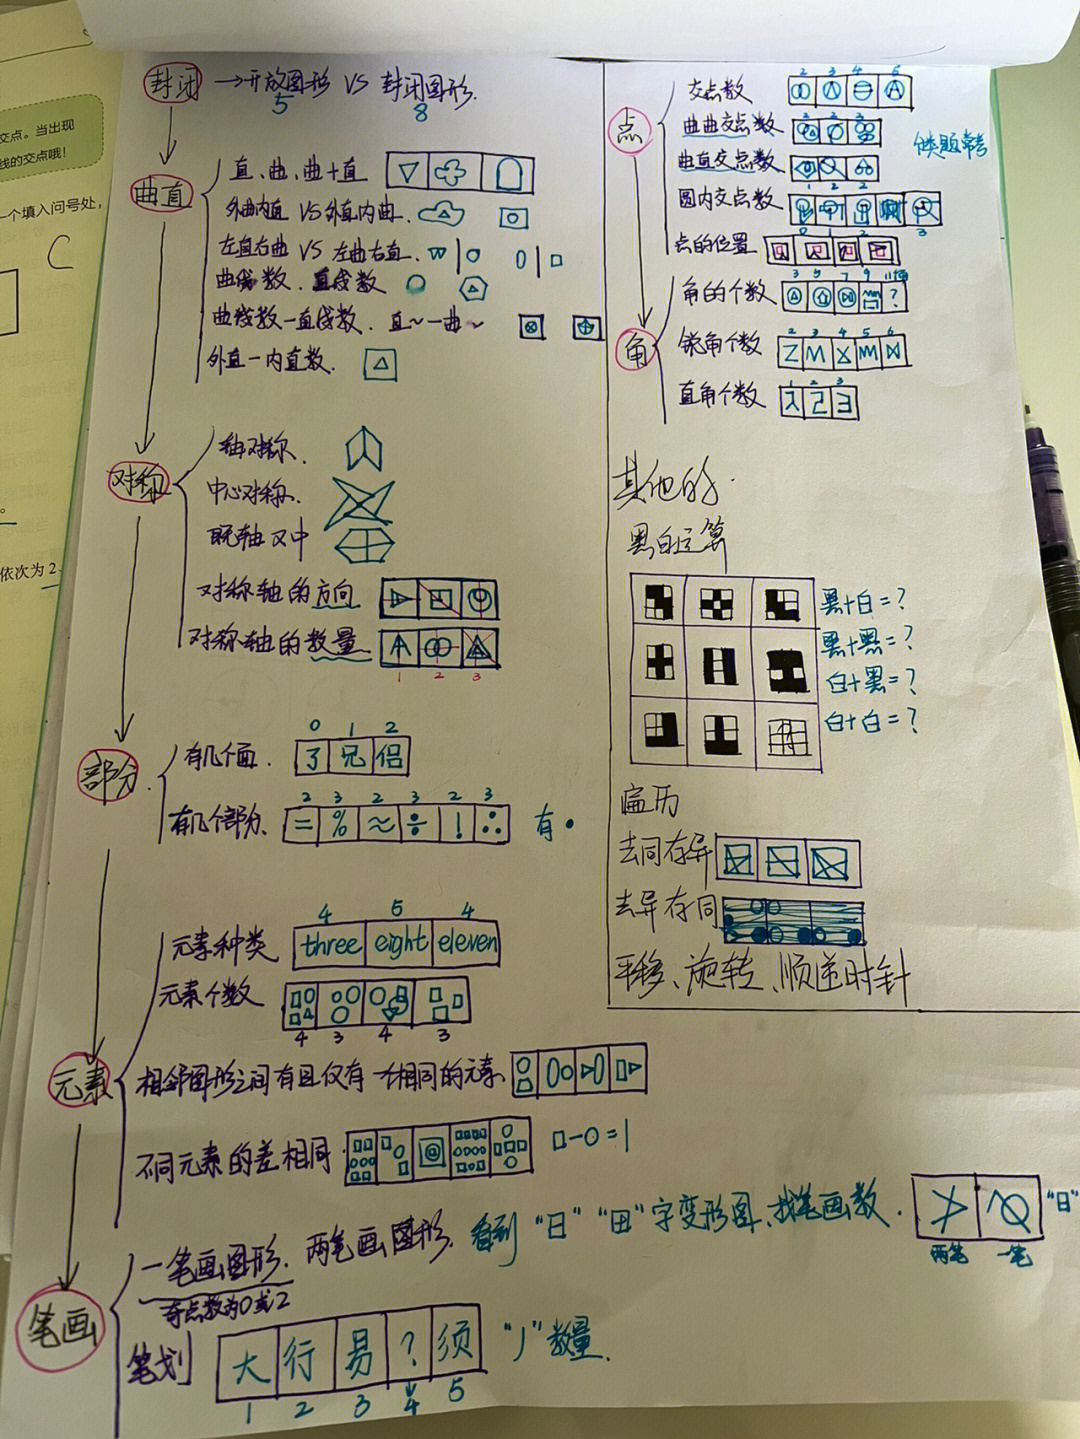 交点。当出现
线的交点哦!
一个填入问号处,
C
依次为2、
封闭 →开放图形 VS 封闭图形.
5 8
曲直
直、曲、曲+直
外曲内直 VS外直内曲.
左直右曲 VS 左曲右直.
曲线数、直线数
曲线数-直线数、直~-曲~
外直-内直数.
对称
轴对称.
中心对称.
既轴又中
对称轴的方向
对称轴的数量
1 2 3
部分.
有几个面.
0 1 2
了 兄 侣
有几个部分.
2 3 2 3 2 3
= % ≈ ÷ ! ∴
有·
元素
元素种类
4 5 4
three eight eleven
元素个数
4 3 4 3
相邻图形之间有且仅有一个相同的元素
不同元素的差相同.
□-○=1
笔画
一笔画图形. 两笔画图形. 看到"日""田"字变形图、找笔画数.
奇点数为0或2
两笔 一笔
"日"
笔划
大 行 易 ? 须
1 2 3 4 5
"丿"数量.
点
交点数
2 3 4 5
曲曲交点数
曲直交点数
1 2 2
圆内交点数
0 1 2 3
点的位置
角
角的个数
3 5 7 9
?
锐角个数
2 3 4 5 6
直角个数
1 2 3
其他的.
黑白运算
黑+白=?
黑+黑=?
白+黑=?
白+白=?
遍历
去同存异
去异存同
平移、旋转、顺逆时针